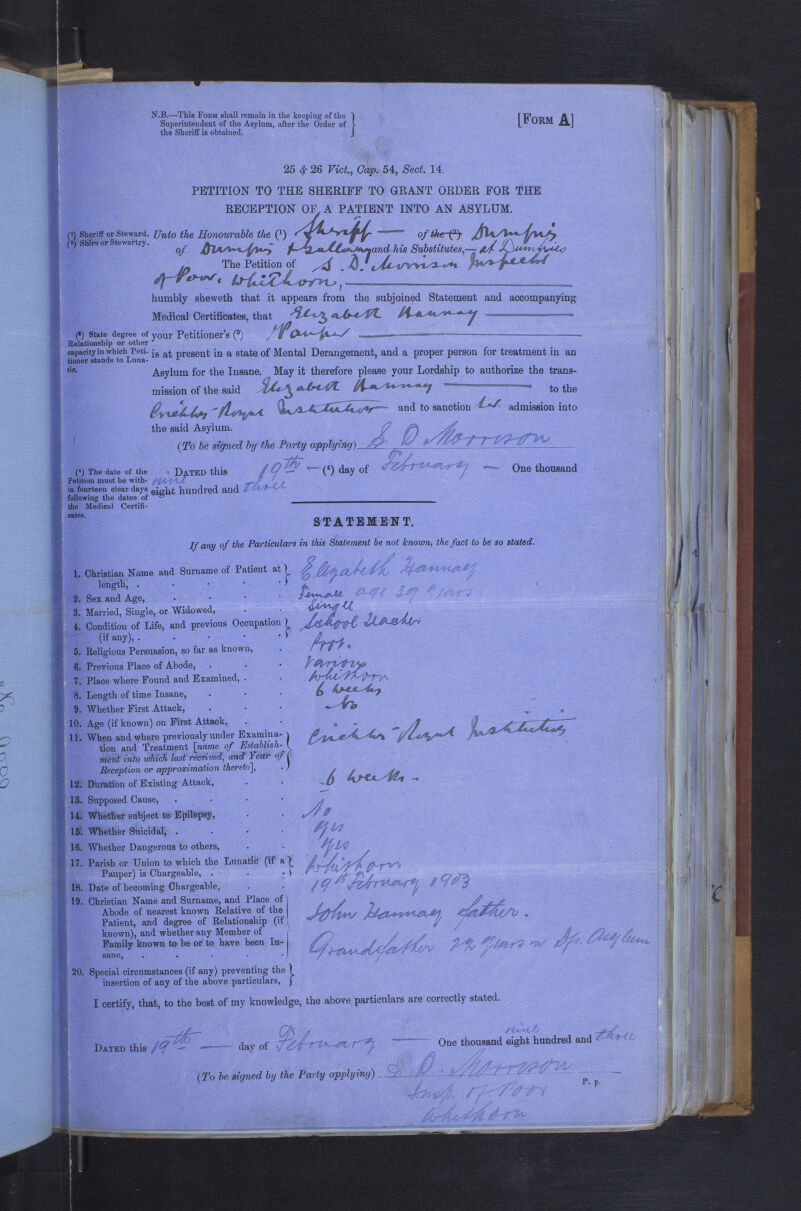 N.B.—This Form shall remain in the keeping of the
Superintendent of the Asylum, after the Order of
the Sheriff is obtained.
[Form A]
25 & 26 Vict., Cap. 54, Sect. 14.
PETITION TO THE SHERIFF TO GRANT ORDER FOR THE
RECEPTION OF A PATIENT INTO AN ASYLUM.
(¹) Sheriff or Steward.
(²) Shire or Stewartry.
Unto the Honourable the (¹) Sheriff — of the (²) Dumfries
of Dumfries & Galloway and his Substitutes,— at Dumfries
The Petition of S. D. Morrison Inspector
of Poor, Whithorn,
humbly sheweth that it appears from the subjoined Statement and accompanying
Medical Certificates, that Elizabeth Hannay
(³) State degree of
Relationship or other
capacity in which Peti-
tioner stands to Luna-
tic.
your Petitioner's (³) Pauper
is at present in a state of Mental Derangement, and a proper person for treatment in an
Asylum for the Insane. May it therefore please your Lordship to authorize the trans-
mission of the said Elizabeth Hannay — to the
Crichton Royal Institution and to sanction her admission into
the said Asylum.
(To be signed by the Party applying) S. D. Morrison
(⁴) The date of the
Petition must be with-
in fourteen clear days
following the dates of
the Medical Certifi-
cates.
Dated this 19th — (⁴) day of February — One thousand
nine
eight hundred and three
STATEMENT.
If any of the Particulars in this Statement be not known, the fact to be so stated.
1. Christian Name and Surname of Patient at
length, . Elizabeth Hannay
2. Sex and Age, Female age 39 years
3. Married, Single, or Widowed, Single
4. Condition of Life, and previous Occupation
(if any), . School Teacher
5. Religious Persuasion, so far as known, Prot.
6. Previous Place of Abode, Various
7. Place where Found and Examined, Whithorn
8. Length of time Insane, 6 weeks
9. Whether First Attack, No
10. Age (if known) on First Attack,
11. When and where previously under Examina-
tion and Treatment [name of Establish-
ment into which last received, and Year of
Reception or approximation thereto], Crichton Royal Institution
12. Duration of Existing Attack, 6 weeks.
13. Supposed Cause, —
14. Whether subject to Epilepsy, No
15. Whether Suicidal, yes
16. Whether Dangerous to others, yes
17. Parish or Union to which the Lunatic (if a
Pauper) is Chargeable, Whithorn
18. Date of becoming Chargeable, 19th February 1903
19. Christian Name and Surname, and Place of
Abode of nearest known Relative of the
Patient, and degree of Relationship (if
known), and whether any Member of
Family known to be or to have been In-
sane, John Hannay father.
Grandfather 22 years in Dfs. Asylum
20. Special circumstances (if any) preventing the
insertion of any of the above particulars,
I certify, that, to the best of my knowledge, the above particulars are correctly stated.
nine
Dated this 19th — day of February — One thousand eight hundred and three
(To be signed by the Party applying) S. D. Morrison
P. p.
Insp. of Poor
Whithorn